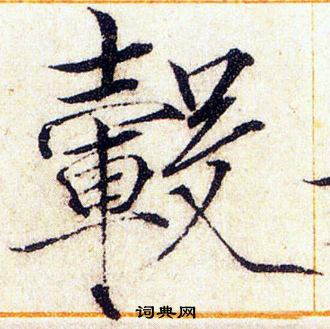 轂
词典网